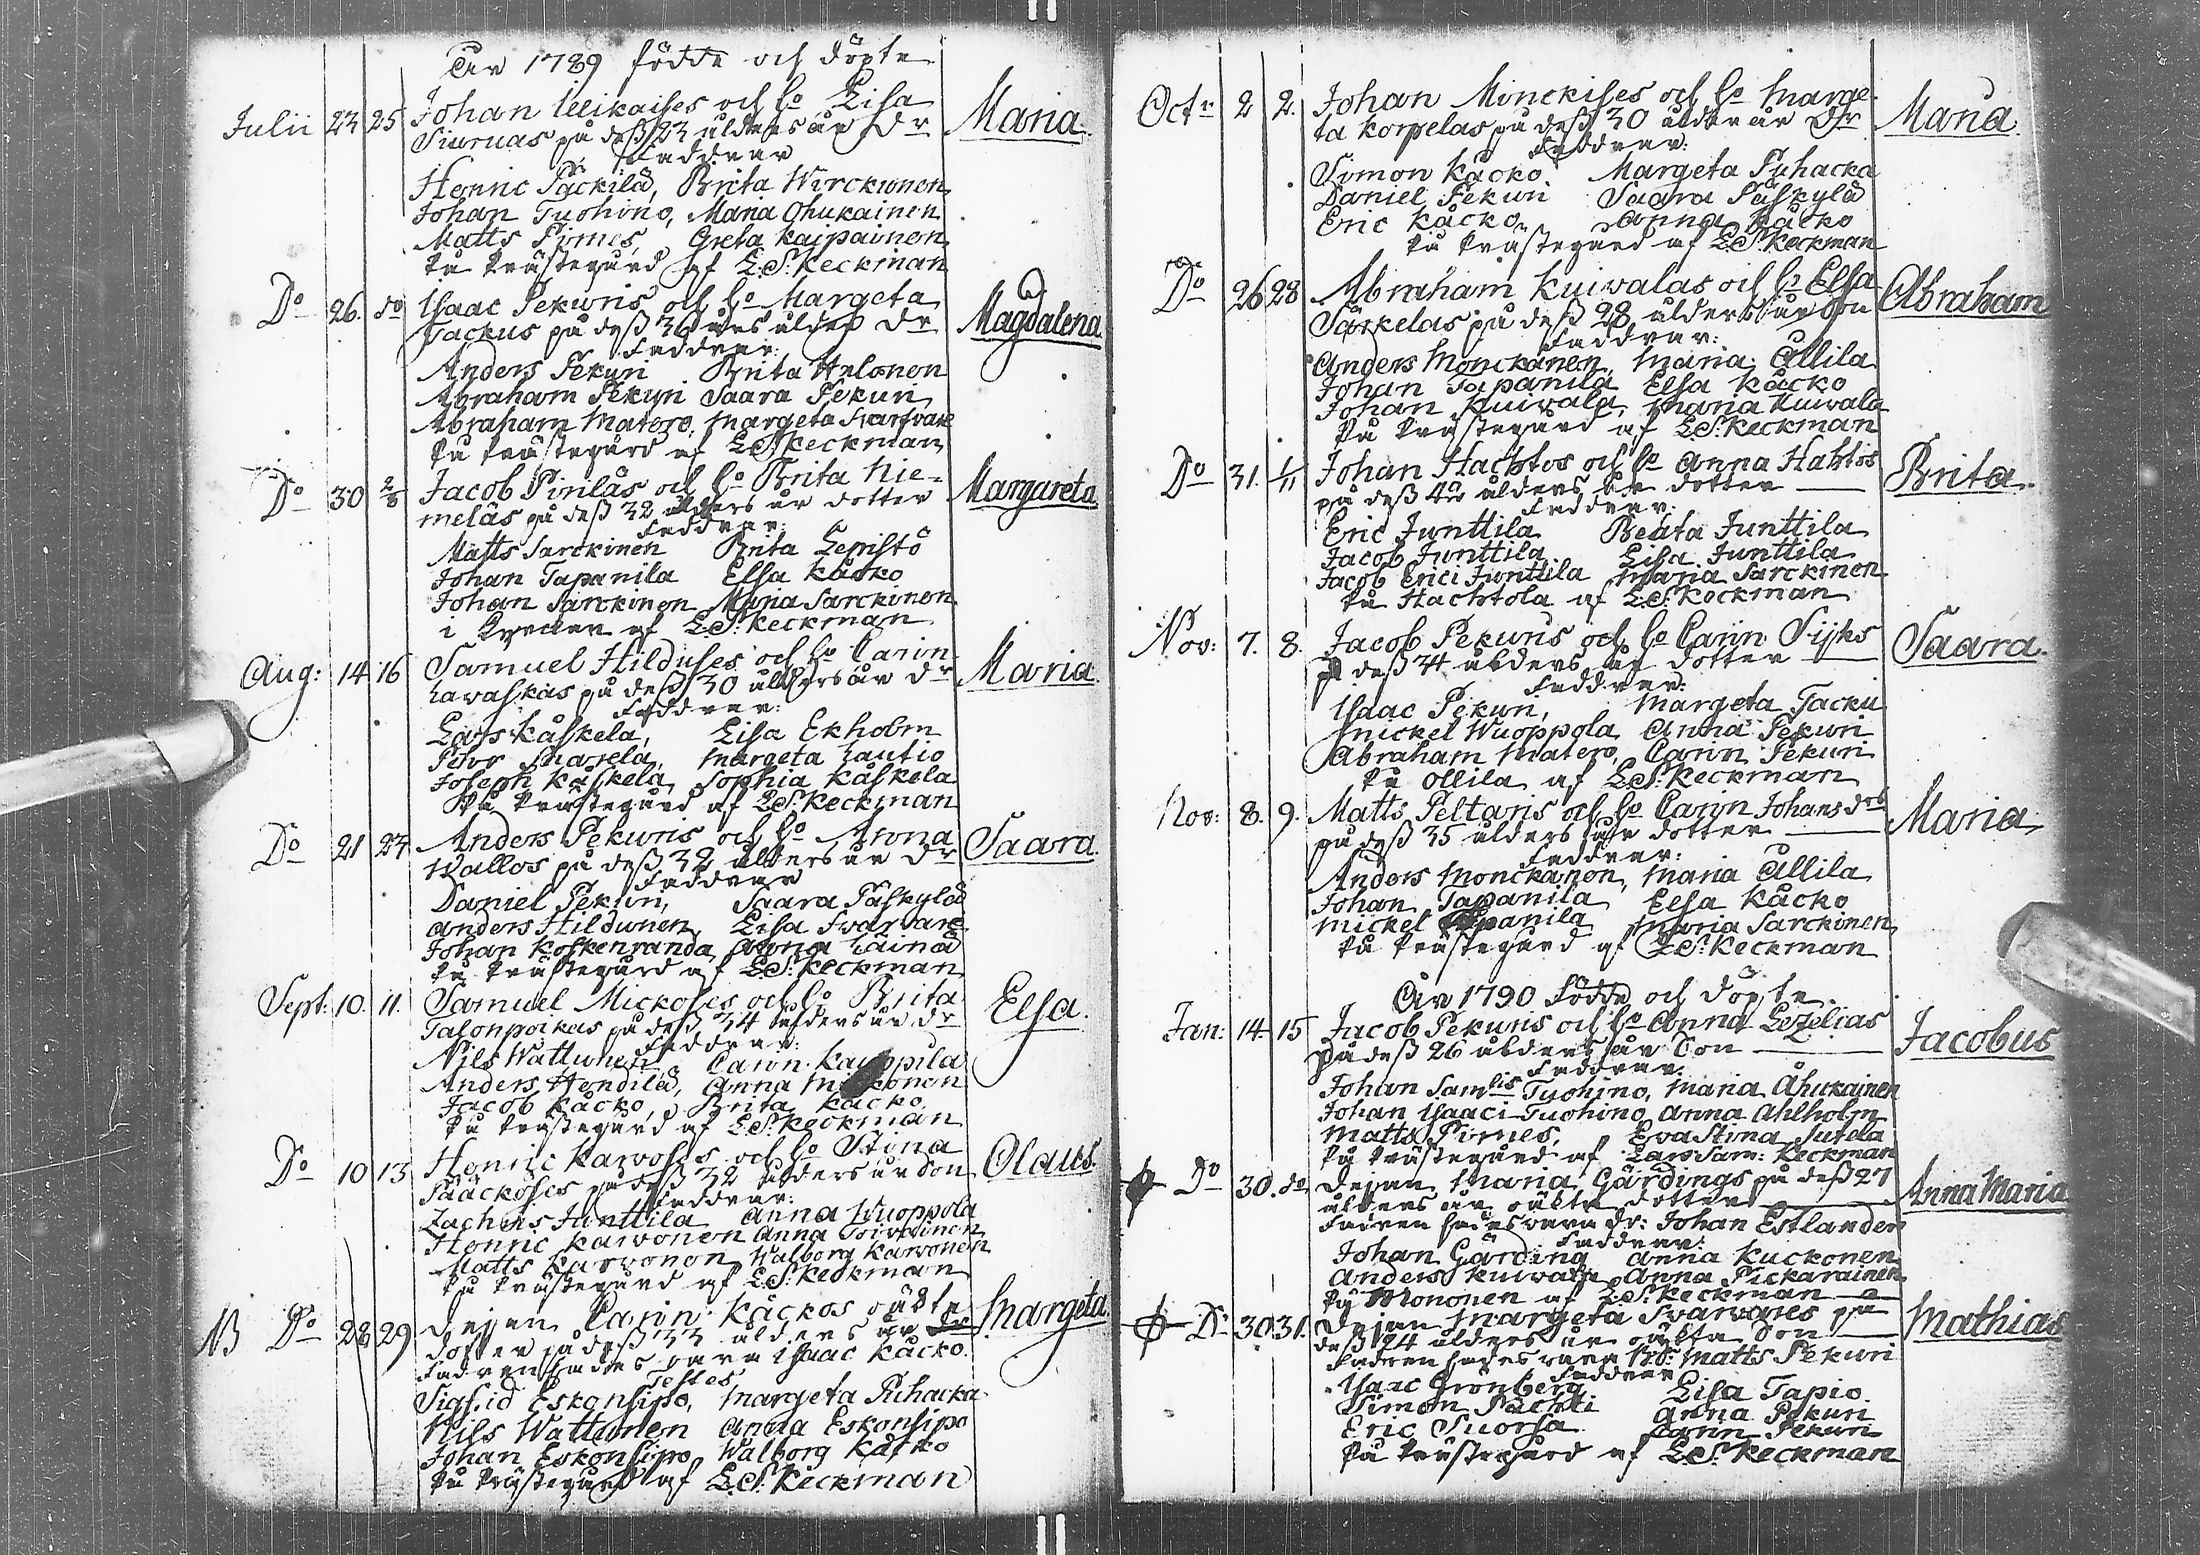 År 1789 födde och döpte
Julii 23 25 Johan Mikaises och ho Lisa Maria
Siuruas på deß 23 ålders år Dr
Faddrar
Henric Päckilä, Brita Wirckunen
Johan Tuohino, Maria Ohukainen
Matts Pirnes, Greta Kaipainen
På Prästegård af L.S. Keckman
Do 26. do Isaac Pekuris och ho Margeta Magdalena
Tackus på deß 36 års ålder Dr
Faddrar:
Anders Pekuri Brita Halonen
Abraham Pekuri Saara Pekuri
Abraham Matero, Margeta Svarfvare
På Prästegård af L.S. Keckman
Do 30 2/8 Jacob Pirilas och ho Brita Nie- Margareta
meläs på deß 32 ålders år dotter
Faddrar:
Matts Sarckinen Brita Lepistö
Johan Tapanila Elsa Kåcko
Johan Sarckinen Maria Sarckinen
i af L.S. Keckman
Aug: 14 16 Samuel Hilduses och ho Carin Maria
Lawaskas på deß 30 ålders år dr
Faddrar:
Lars Kåskela, Lisa Ekholm
Petor Sharela, Margeta Lautio
Joseph Kåskela, Sophia Kåskela
På Prästegård af L.S. Keckman
Do 21 23 Anders Pekuris och ho Anna Saara
Wallos på deß 32 ålders år Dr
Faddrar
Daniel Pekuri, Saara Päskylä
Anders Hildunen, Lisa Svarvare
Johan Koskenranda, Anna Lainå
På Prästegård af L.S. Keckman
Sept: 10. 11. Samuel Mickoses och ho Brita Elsa
Talonpoikas på deß 34 ålders år dr
Faddrar:
Nils Wattunen Carin Kauppila
Anders Hendilä, Anna
Jacob Kåcko, Brita Kåcko
På Prästegård af L.S. Keckman
Do 10 13 Henric Karvoses och ho Stina Olaus
Sååckoses på deß 32 ålders år Son
Faddrar:
Zachris Junttila Anna Wuoppola
Henric Karvonen Anna Toivoinen
Matts Karvonen Walborg Karvonen
På Prästegård af L.S. Keckman
NB Do 28 29 Pejan Carin Kåckos oäkte Margeta
dotter på deß 33 ålders år
Fadren sades vara Isaac Kåcko.
Testes
Sigfrid Eskonsipo, Margeta Puhacka
Nils Wattunen Anna Eskonsipo
Johan Eskonsipo Walborg Kåcko
På Prästegård af L.S. Keckman
Octr 2 2. Johan Minckises och ho Marge- Maria
ta Korpelas på deß 30 ålders år Dr
Faddrar:
Simon Kåcko Margeta Puhacka
Daniel Pekuri Saara Päskylä
Eric Kåcko Anna Kåcko
På Prästegård af L.S. Keckman
Do 26 28 Abraham Kuivalas och ho Elsa Abraham
Särkelas på deß 28 ålders år Son
Faddrar:
Anders Monckanen, Maria Ollila
Johan Tapanila Elsa Kåcko
Johan Kuivala, Maria Kuivala
På Prästegård af L.S. Keckman
Do 31. 1/11 Johan Hachtos och ho Anna Hahtos Brita.
på deß 42 ålders år dotter
Faddrar:
Eric Junttila Beata Junttila
Jacob Junttila Lisa Junttila
Jacob Erici Junttila Maria Sarckinen
På Hachtola af L.S. Keckman
Nov: 7. 8. Jacob Pekuris och ho Carin Sijks Saara.
på deß 34 ålders år dotter
Faddrar:
Isaac Pekuri, Margeta Tacku
Mickel Wuoppola Anna Pekuri
Abraham Matero, Carin Pekuri
På Ollila af L.S. Keckman
Nov: 8. 9. Matts Peltaris och ho Carin Johansdr Maria
på deß 35 ålders år dotter
Faddrar:
Anders Monckanen, Maria Ollila
Johan Tapanila Elsa Kåcko
Mickel Tapanila Maria Sarckinen
På Prästegård af L.S. Keckman
År 1790 födde och döpte.
Jan: 14 15 Jacob Pekuris och ho Anna Lezelias Jacobus
på deß 26 ålders år Son
Faddrar.
Johan Samlis Tuohino, Maria Åhukainen
Johan Isaaci Tuohino, Anna Ahlholm
Matts Pirnes, Eva Stina Sutela
På Prästegård af Lars Sam: Keckman
Do 30. do Pejan Maria Gärdings på deß 27 Anna Maria
ålders år oäkta dotter
Fadren sades vara Dr: Johan Estlander
Faddrar:
Johan Gärding Anna Kuckonen
Anders Kuivala Anna Pickarainen
På Mononen af L.S. Keckman
Do 30. 31. Pejan Margeta Svarvares på Mathias
deß 24 ålders år oäkta Son
Fadren sades vara Matts Pekuri
Faddrar
Isaac Grönberg Lisa Tapio
Simon Pächti Anna Pekuri
Eric Suorsa Carin Pekuri
På Prästegård af L.S. Keckman